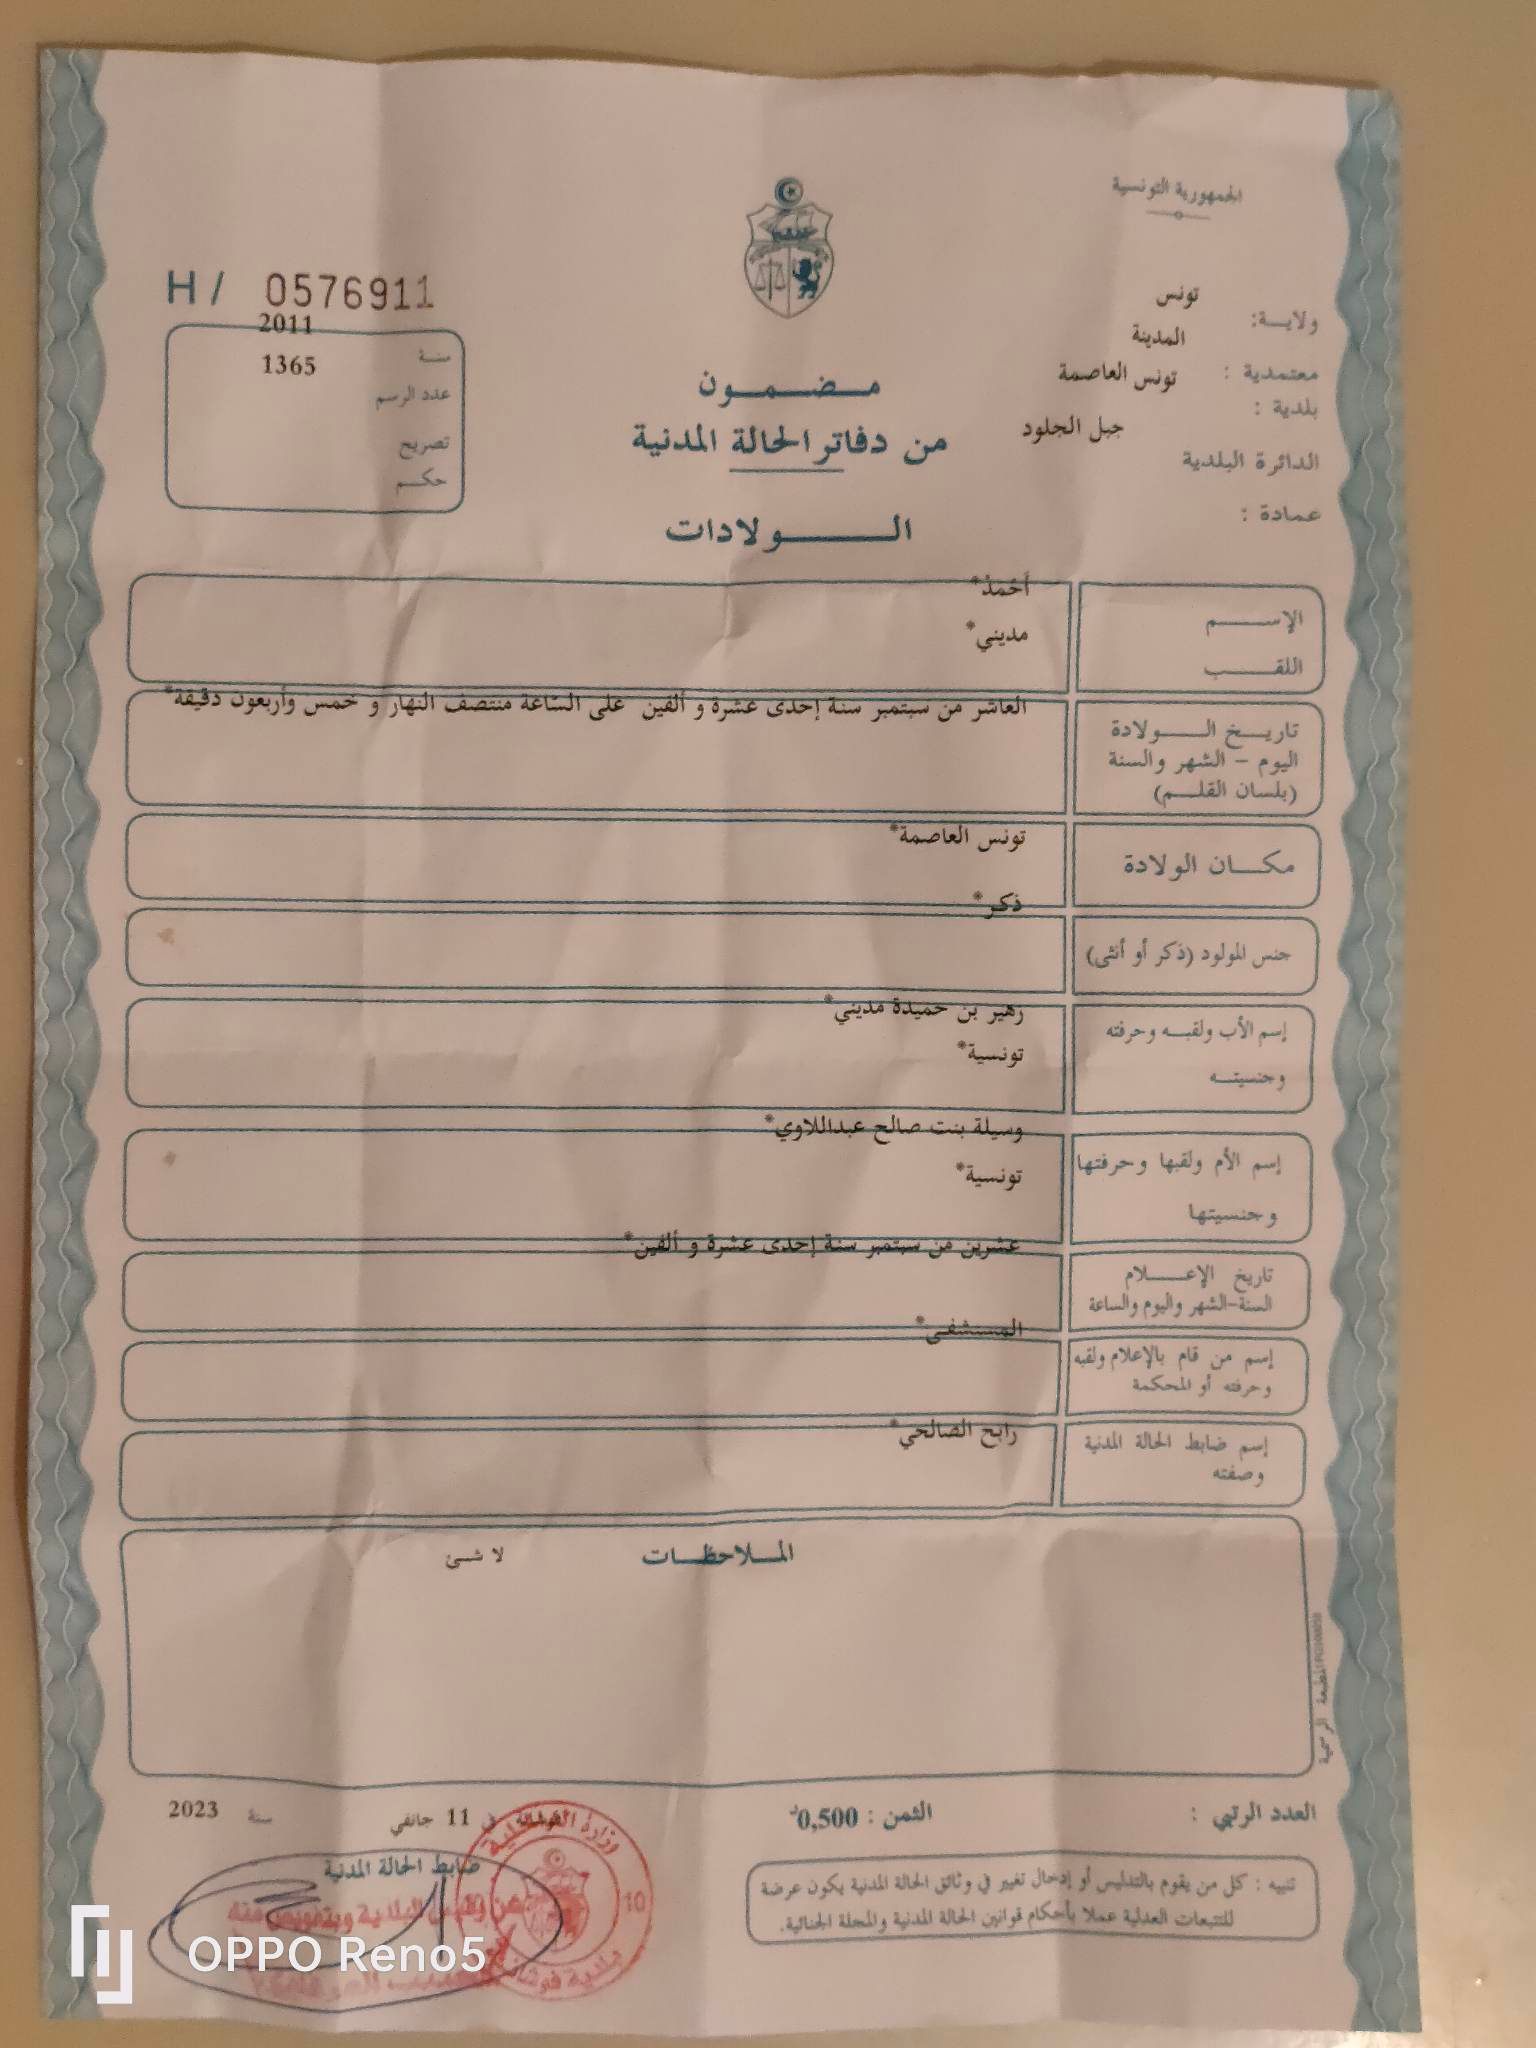 الجمهورية التونسية
H / 0576911
ولايـــة: تونس
معتمدية : المدينة
بلدية : تونس العاصمة
الدائرة البلدية جبل الجلود
عمادة :
سنــة 2011
عدد الرسم 1365
تصريح
حكـــم
مـضـمـــون
من دفاتر الحالة المدنية
الــــــولادات
الإســـــم أَحْمدْ*
اللقـــــب مديني*
تاريـــخ الـــــولادة العاشر من سبتمبر سنة إحدى عشرة و ألفين على السّاعة منتصف النهار و خمس وأربعون دقيقة*
اليوم – الشهر والسنة
(بلسان القلـــم)
مكـــان الولادة تونس العاصمة*
جنس المولود (ذكر أو أنثى) ذكر*
إسم الأب ولقبـــه وحرفته زهير بن حميدة مديني*
وجنسيتــه تونسية*
إسم الأم ولقبها وحرفتها وسيلة بنت صالح عبداللاوي*
وجنسيتها تونسية*
تاريخ الإعـــــلام عشرين من سبتمبر سنة إحدى عشرة و ألفين*
السنة-الشهر واليوم والساعة
إسم من قام بالإعلام ولقبه المستشفى*
وحرفته أو المحكمة
إسم ضابط الحالة المدنية رابح الصالحي*
وصفته
المـــلاحظـــات لا شئ
المطبعة الرسمية
العدد الرتبي :
الثمن : 0,500د
فوشانة في 11 جانفي سنة 2023
ضابط الحالة المدنية
تنبيه : كل من يقوم بالتدليس أو إدخال تغيير في وثائق الحالة المدنية يكون عرضة
للتتبعات العدلية عملا بأحكام قوانين الحالة المدنية والمجلة الجنائية.
وزارة الداخلية
10
بلدية فوشانة
عن رئيس البلدية وبتفويض منه
OPPO Reno5